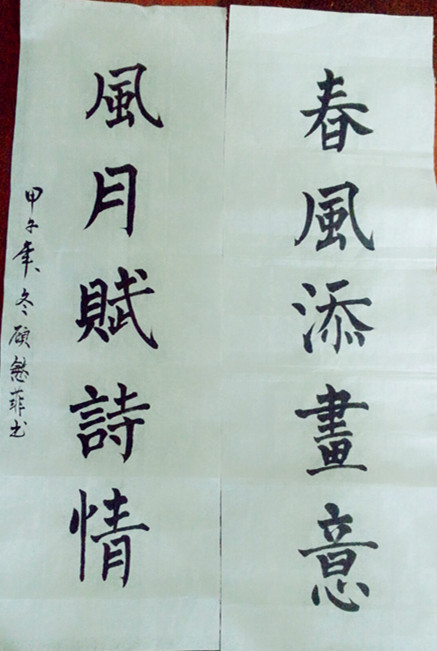 春風添畫意
風月賦詩情
甲午年冬顾慈菲书